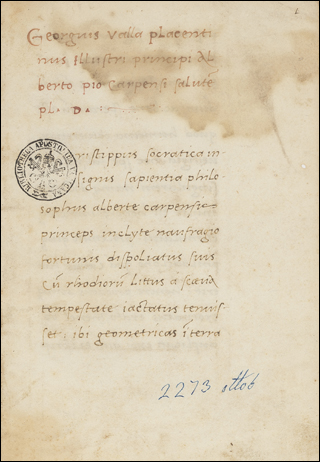 Georgius Valla placenti
nus Illustri principi Al
berto pio Carpensi salutē
pl. D.
ristippus socratica in
signis sapientia philo
sophus alberte carpensiū
princeps inclyte naufragio
fortunis dispoliatus suis
Cū rhodiorū littus a sæua
tempestate iactatus tenuis
set: ibi geometricas ī terra
2273 ottob